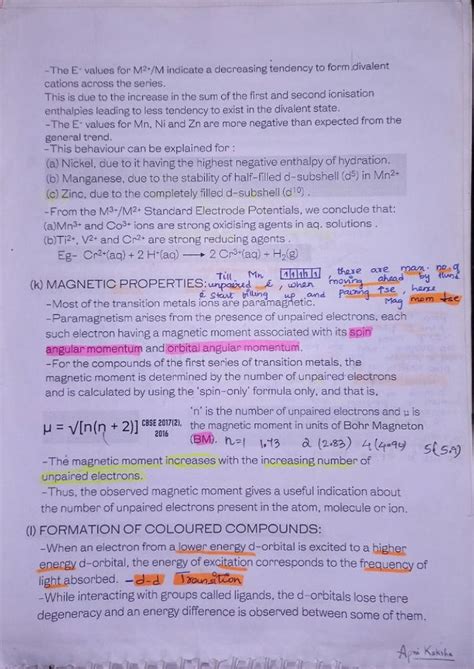 -The E° values for M²⁺/M indicate a decreasing tendency to form divalent
cations across the series.
This is due to the increase in the sum of the first and second ionisation
enthalpies leading to less tendency to exist in the divalent state.
-The E° values for Mn, Ni and Zn are more negative than expected from the
general trend.
-This behaviour can be explained for :
(a) Nickel, due to it having the highest negative enthalpy of hydration.
(b) Manganese, due to the stability of half-filled d-subshell (d⁵) in Mn²⁺
(c) Zinc, due to the completely filled d-subshell (d¹⁰) .
-From the M³⁺/M²⁺ Standard Electrode Potentials, we conclude that:
(a)Mn³⁺ and Co³⁺ ions are strong oxidising agents in aq. solutions .
(b)Ti²⁺, V²⁺ and Cr²⁺ are strong reducing agents .
Eg- Cr²⁺(aq) + 2 H⁺(aq) ⟶ 2 Cr³⁺(aq) + H₂(g)
Till Mn there are max. no. of
(k) MAGNETIC PROPERTIES: unpaired e, when moving ahead by
e start filling up and pairing ↑se, hence
Mag mom ↓se
-Most of the transition metals ions are paramagnetic.
-Paramagnetism arises from the presence of unpaired electrons, each
such electron having a magnetic moment associated with its spin
angular momentum and orbital angular momentum.
-For the compounds of the first series of transition metals, the
magnetic moment is determined by the number of unpaired electrons
and is calculated by using the 'spin-only' formula only, and that is,
μ = √[n(n + 2)] CBSE 2017(2), 2016
'n' is the number of unpaired electrons and μ is
the magnetic moment in units of Bohr Magneton
(BM). n=1 1.73 2 (2.83) 4 (4.90) 5(5.9)
-The magnetic moment increases with the increasing number of
unpaired electrons.
-Thus, the observed magnetic moment gives a useful indication about
the number of unpaired electrons present in the atom, molecule or ion.
(l) FORMATION OF COLOURED COMPOUNDS:
-When an electron from a lower energy d-orbital is excited to a higher
energy d-orbital, the energy of excitation corresponds to the frequency of
light absorbed. - d-d Transition
-While interacting with groups called ligands, the d-orbitals lose there
degeneracy and an energy difference is observed between some of them.
Apni Kaksha